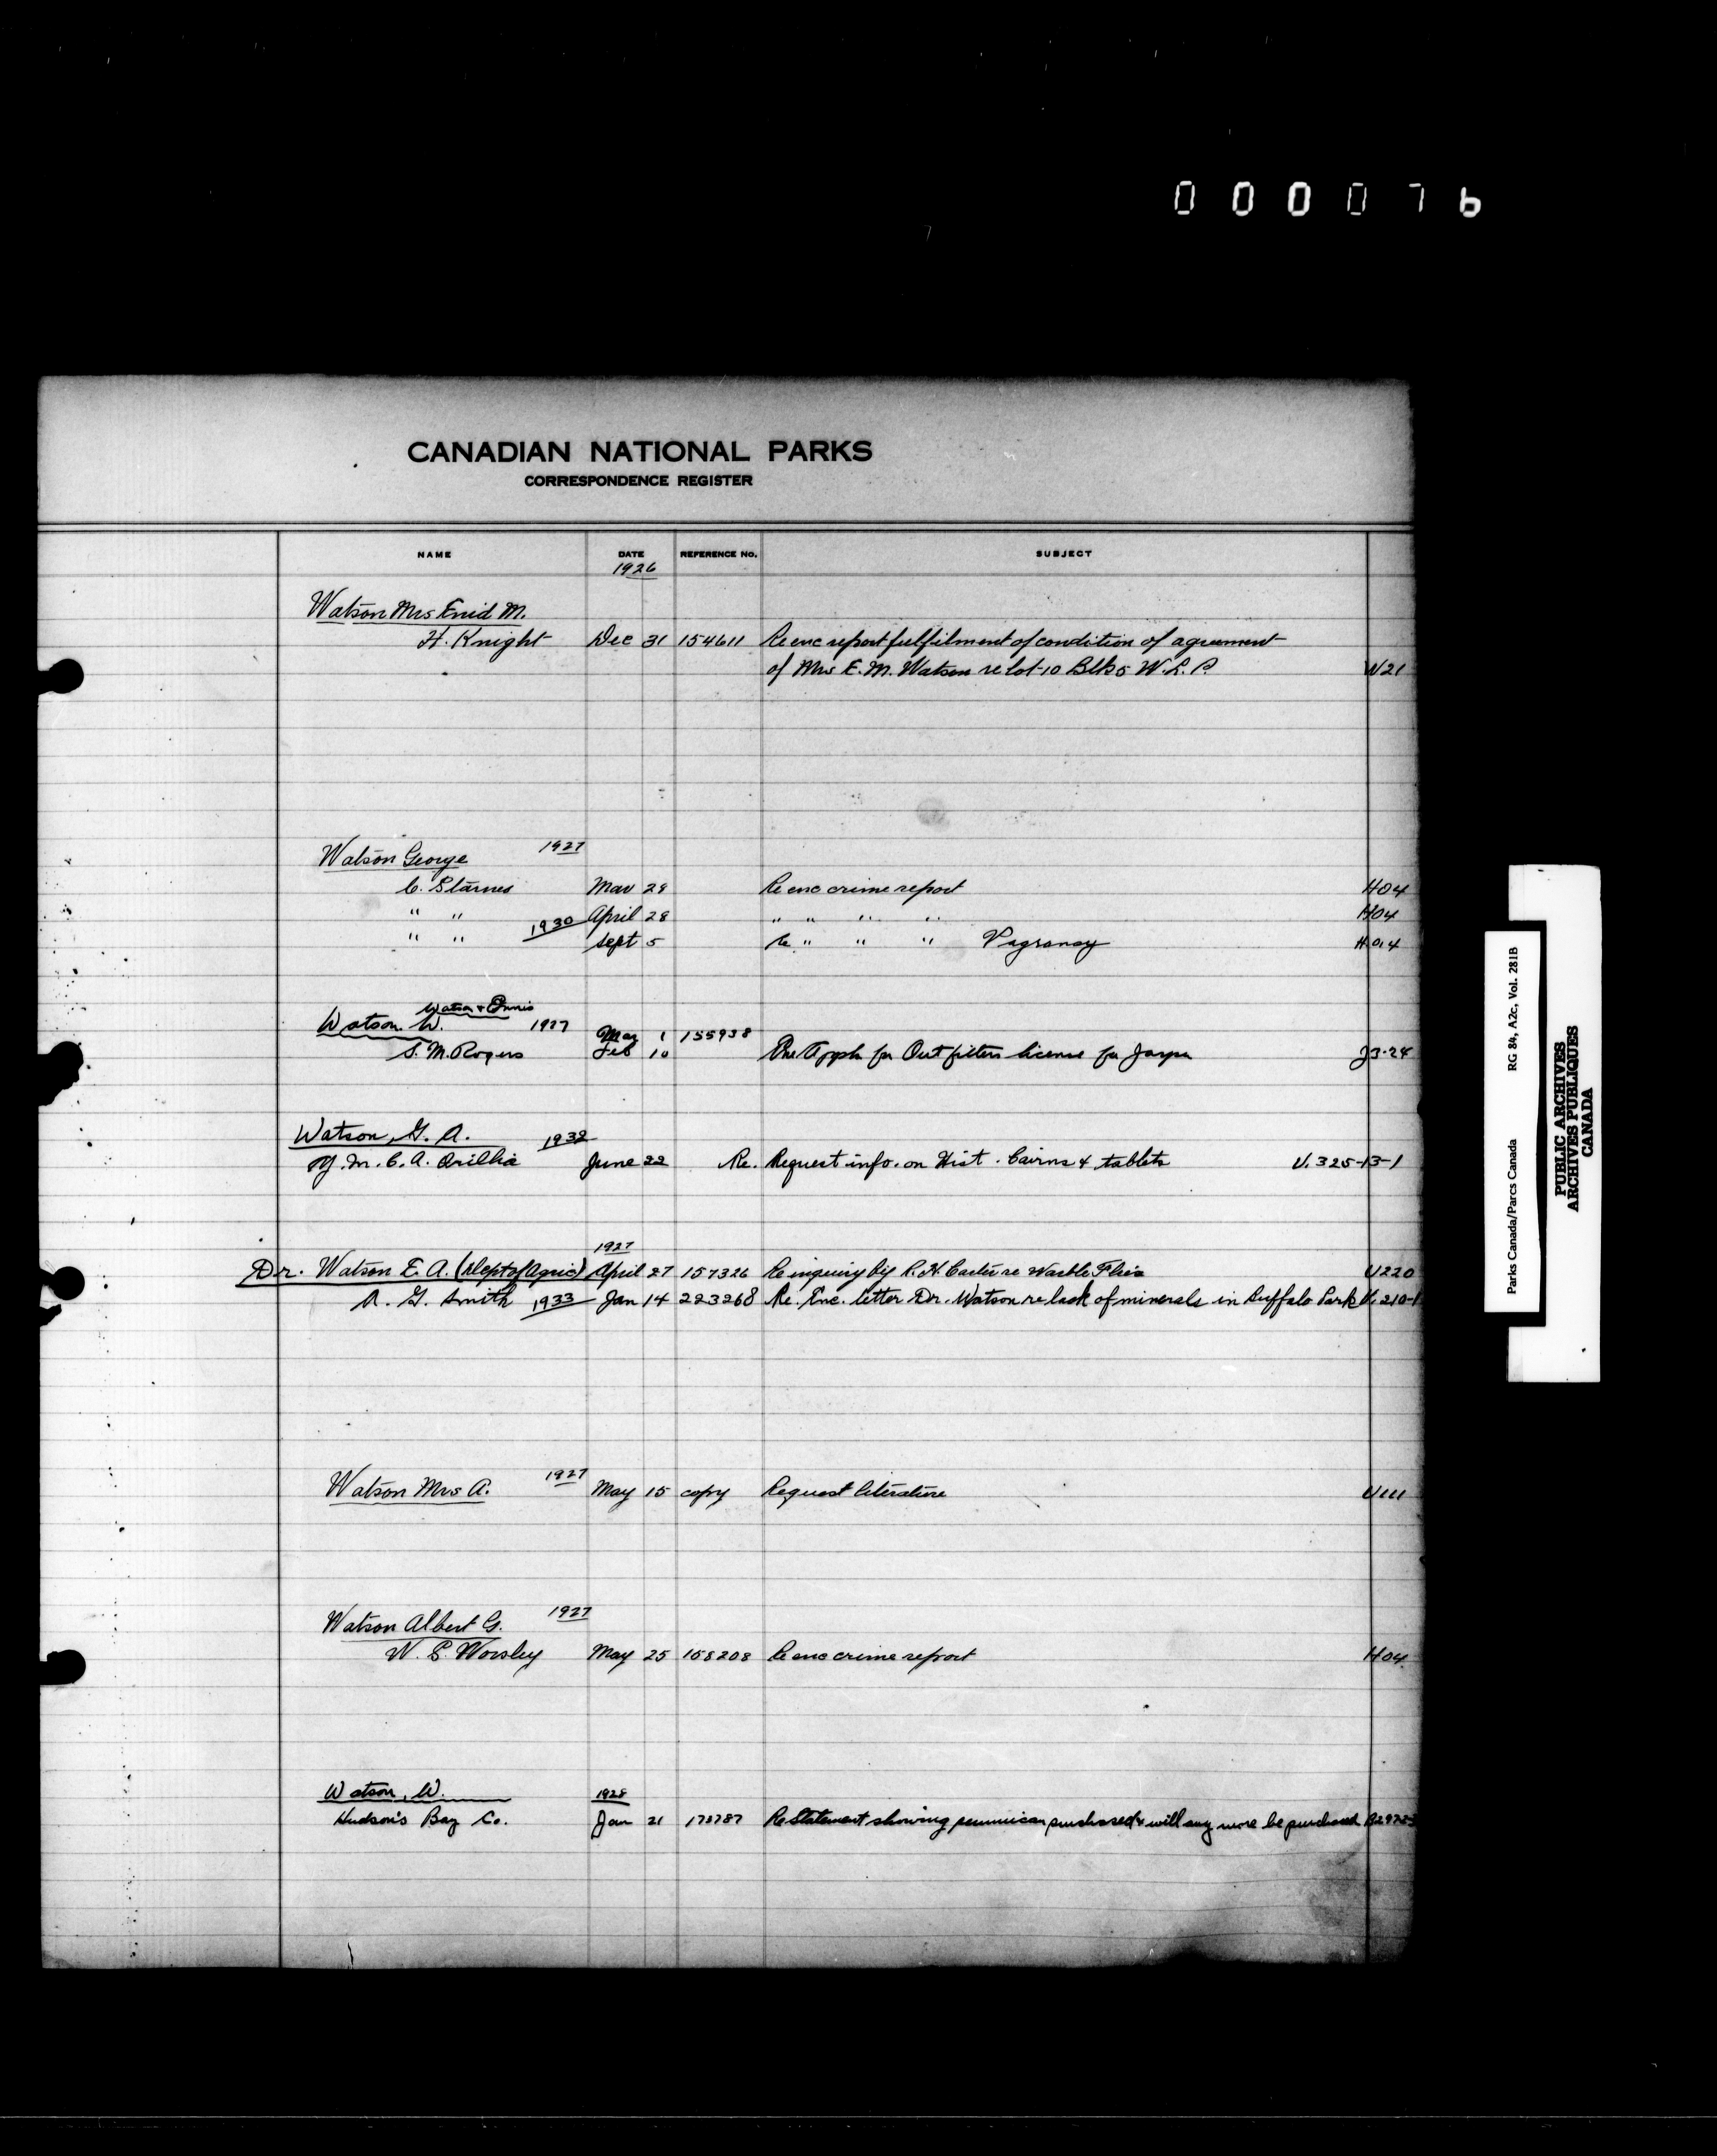 000076
CANADIAN NATIONAL PARKS
CORRESPONDENCE REGISTER
NAME DATE REFERENCE No. SUBJECT
1926
Watson Mrs Enid M.
H. Knight Dec 31 154611 Re enc report fulfilment of condition of agreement
of Mrs E. M. Watson re Lot 10 Blk 5 W.L.P. W21
Watson George 1927
C. Starnes Mar 29 Re enc crime report H04
" " April 28 " " " " H04
" " 1930 Sept 5 Re " " " Vagrancy H04
Watson & Ennis
Watson. W. 1927 Mar 1 155938
S. M. Rogers Feb 10 Re Appln for Outfitters license for Jasper J3-24
Watson, G. A. 1932
Y.M.C.A. Orillia June 22 Re. Request info. on Hist. Cairns & tablets U.325-13-1
1927
Dr. Watson E. A. (Dept of Agric) April 27 157326 Re inquiry by R. H. Carter re Warble Flies U220
A. G. Smith 1933 Jan 14 223268 Re. Enc. letter Dr. Watson re lack of minerals in Buffalo Park U.210-1
Watson Mrs A. 1927 May 15 copy Request literature U111
Watson Albert G. 1927
W. S. Worsley May 25 158208 Re enc crime report H04
Watson, W. 1928
Hudson's Bay Co. Jan 21 170787 Re Statement showing pemmican purchased & will any more be purchased
Parks Canada/Parcs Canada RG 84, A2c, Vol. 281B
PUBLIC ARCHIVES
ARCHIVES PUBLIQUES
CANADA